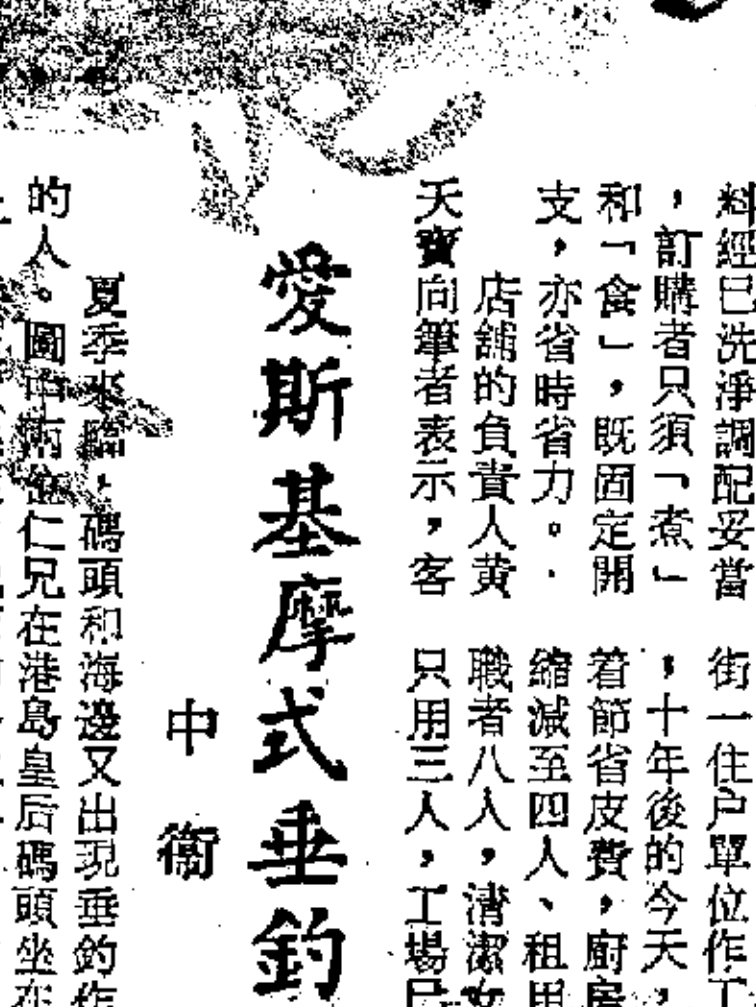 料經已洗淨調配妥當
，訂購者只須「煮」
和「食」，既固定開
支，亦省時省力。
店舖的負責人黃
天寶向筆者表示，客
街一住户單位作工
，十年後的今天，
着節省皮費，廚房
縮減至四人、租用
職者八人，清潔女
只用三人，工場
愛斯基摩式垂釣
中衞
夏季來臨，碼頭和海邊又出現垂釣作
的人。圖中兩位仁兄在港島皇后碼頭坐在